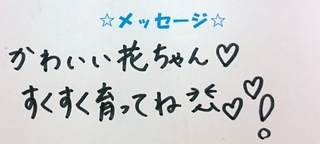 ☆メッセージ☆
かわいい花ちゃん♡
すくすく育ってね♡♡!